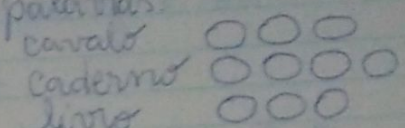 cavalo
caderno
livro